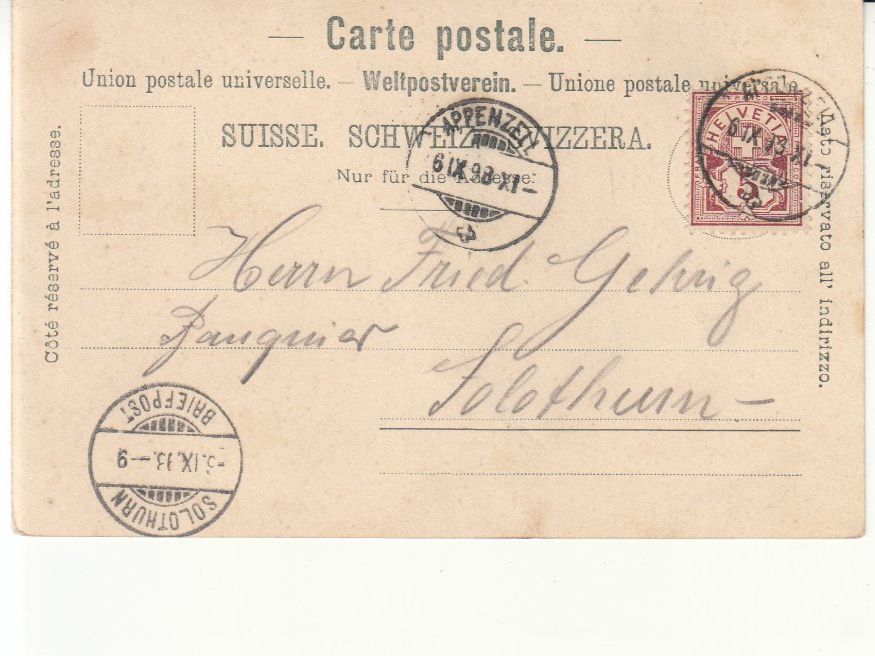 — Carte postale. —
Union postale universelle. — Weltpostverein. — Unione postale universale.
SUISSE. SCHWEIZ. SVIZZERA.
Nur für die Adresse.
Côté réservé à l'adresse.
Lato riservato all' indirizzo.
APPENZELL
6 IX 93 XI –
HELVETIA
6 IX 93 XI
Herrn Fried. Gehrig
Banquier
Solothurn –
BRIEFPOST
IX. 93. – 9
SOLOTHURN